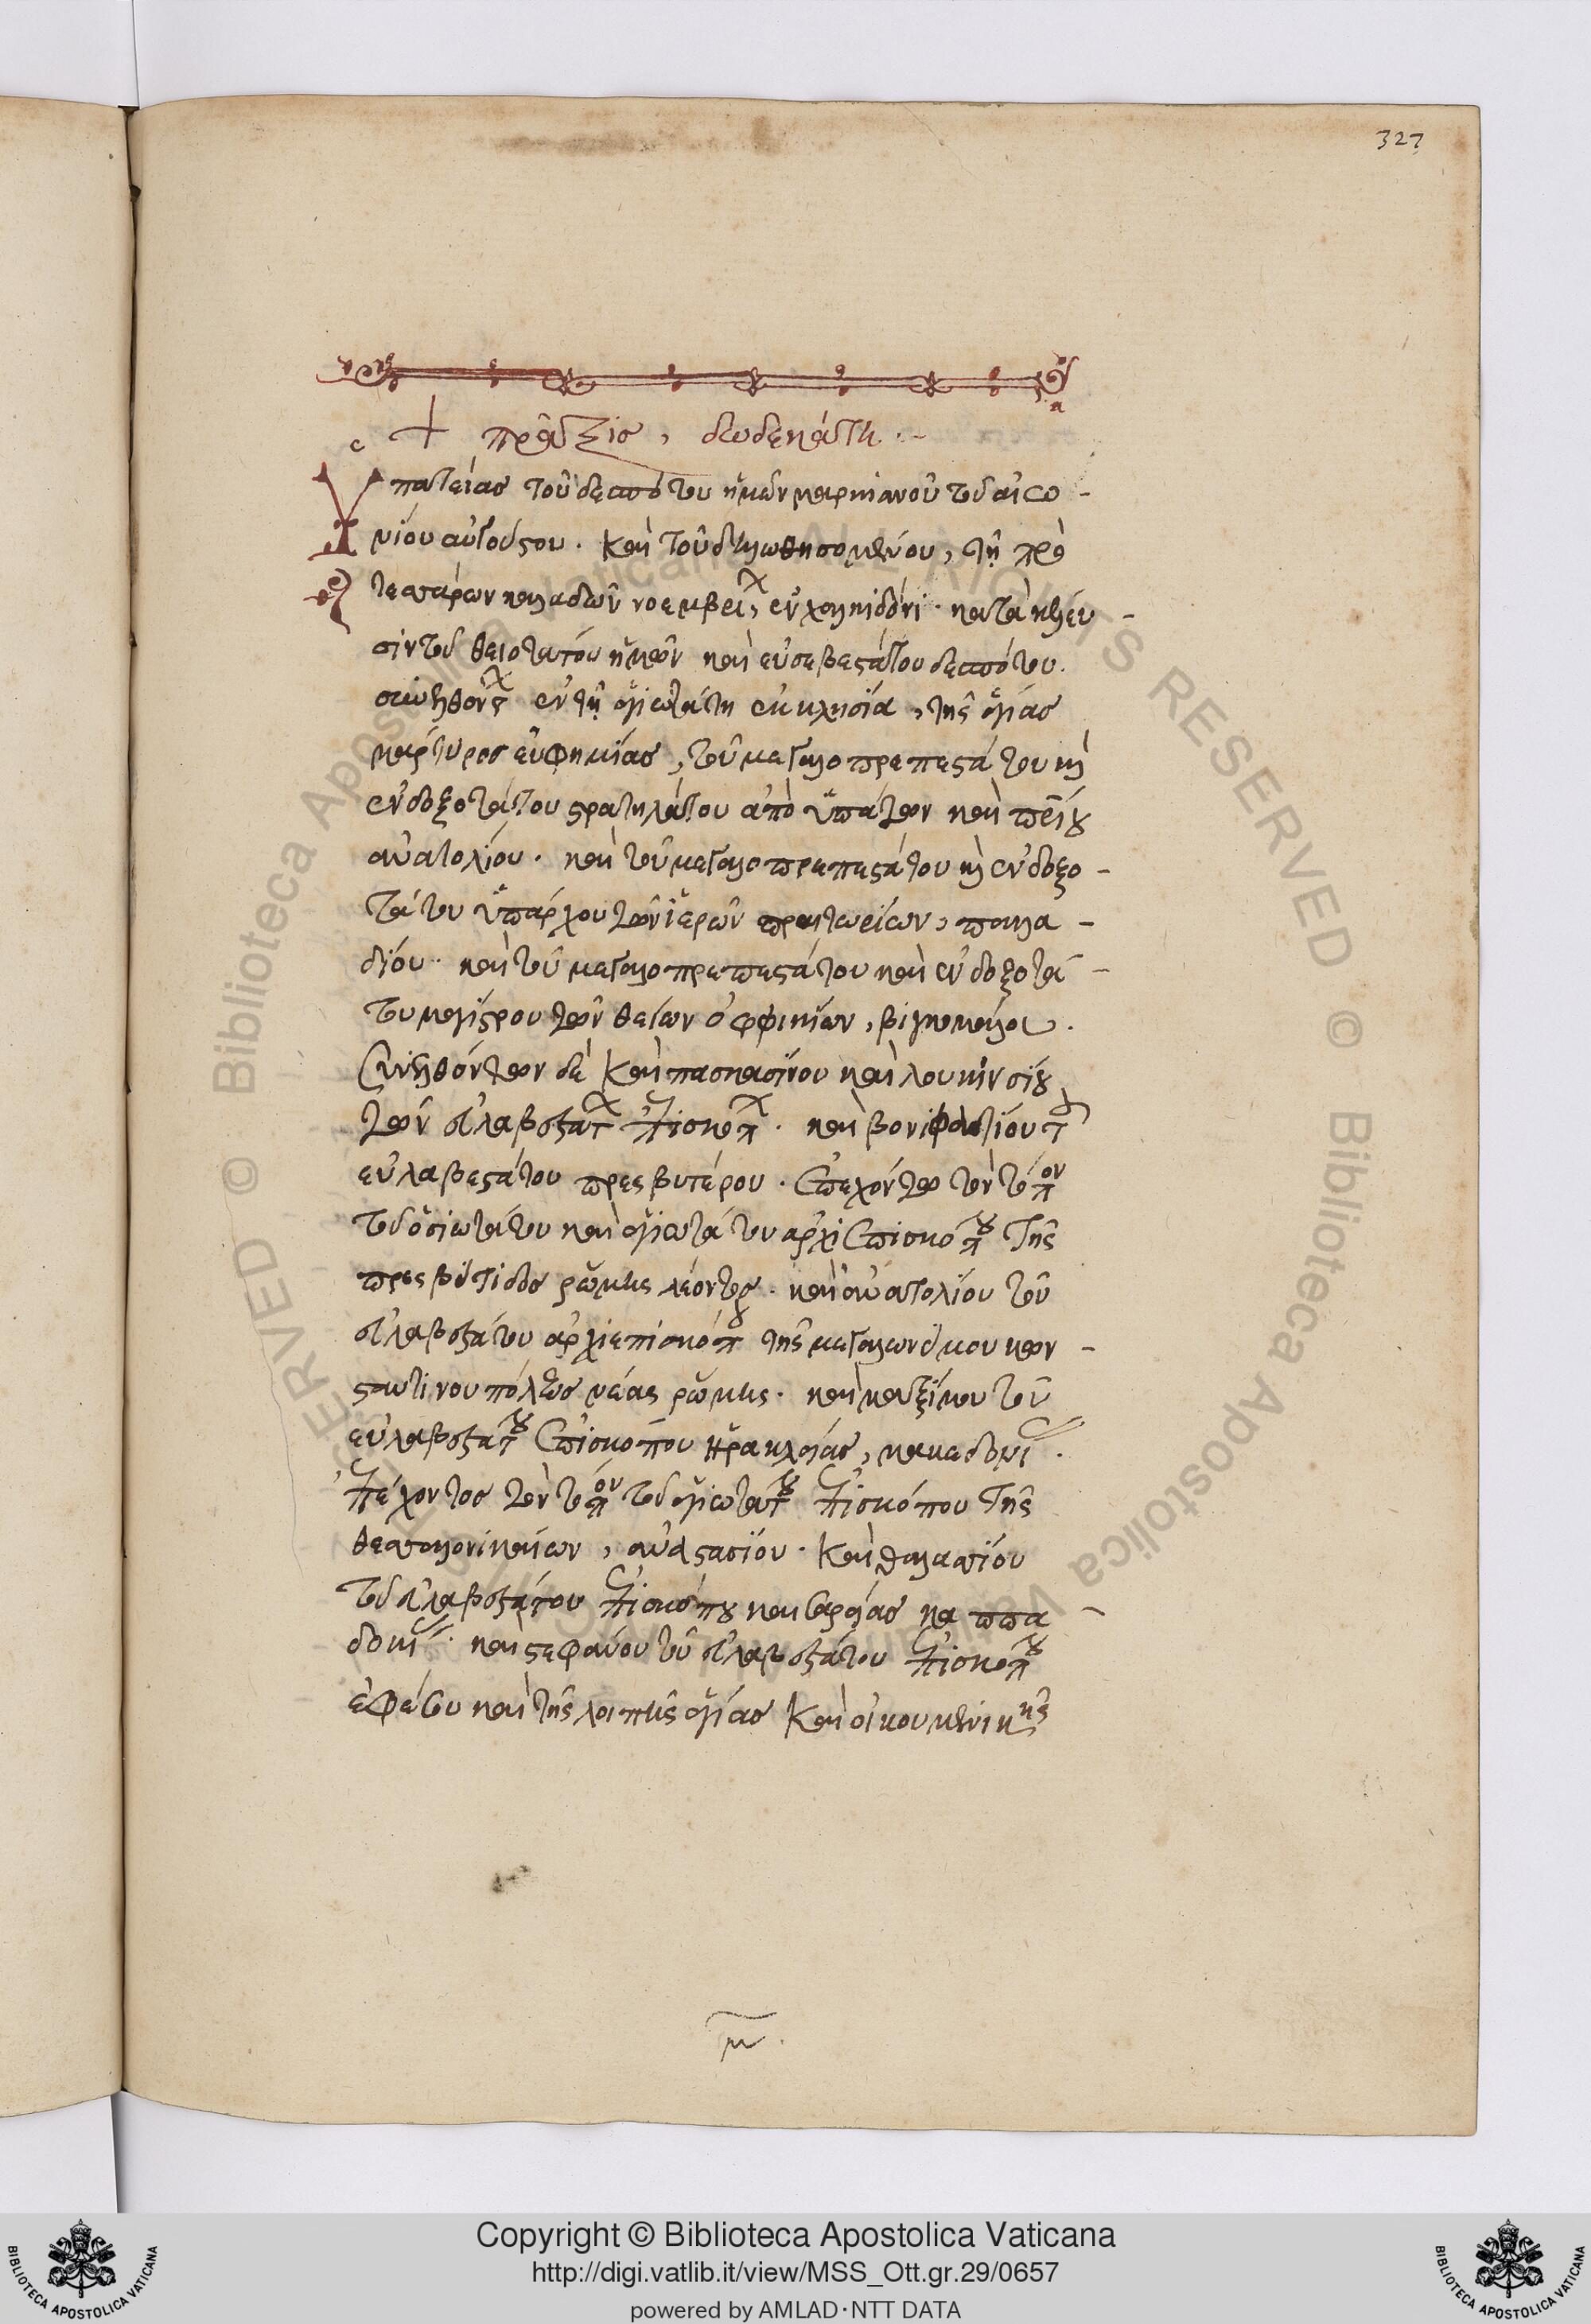 327
+ πρᾶξις, δωδεκάτη.
Ὑπατείας τοῦ δεσπότου ἡμῶν μαρκιανοῦ τοῦ αἰω-
νίου αὐγούστου. καὶ τοῦ δηλωθησομένου, τῇ πρὸ
τεσσάρων καλαδῶν νοεμβρί, ἐν χαλκιδόνι. κατὰ κέλευ-
σιν τοῦ θειοτάτου ἡμῶν καὶ εὐσεβεστάτου δεσπότου.
συνελθόντ ἐν τῇ ἁγιωτάτη ἐκκλησία, τῆς ἁγίας
μάρτυρος εὐφημίας, τοῦ μεγαλοπρεπεστάτου καὶ
ἐνδοξοτάτου στρατηλάτου ἀπὸ ὑπάτων καὶ πρικίου
ἀνατολίου. καὶ τοῦ μεγαλοπρεπεστάτου καὶ ἐνδοξο-
τάτου ὑπάρχου τῶν ἱερῶν πραιτωρίων, παλλα-
δίου. καὶ τοῦ μεγαλοπρεπεστάτου καὶ ἐνδοξοτά-
του μαγίστρου τῶν θείων ὀφφικίων, βιγκομάλου.
Συνελθόντων δὲ καὶ πασκασίνου καὶ λουκινσίου
τῶν εὐλαβεστάτ ἐπισκόπ. καὶ βονιφατίου τ
εὐλαβεστάτου πρεσβυτέρου. ἐπεχόντων τὸν τόπον
τοῦ ὁσιωτάτου καὶ ἁγιωτάτου ἀρχιεπισκόπου τῆς
πρεσβύτιδος ῥώμης λέοντος. καὶ ἀνατολίου τοῦ
εὐλαβεστάτου ἀρχιεπισκόπου τῆς μεγαλωνύμου κων-
σταντινουπόλεως νέας ῥώμης. καὶ μαξίμου τοῦ
εὐλαβεστάτου ἐπισκόπου ἡρακλείας, μακεδονί.
ἐπέχοντος τὸν τόπον τοῦ ἁγιωτάτου ἐπισκόπου τῆς
θεσσαλονικαίων, ἀναστασίου. καὶ θαλασσίου
τοῦ εὐλαβεστάτου ἐπισκόπου καισαρείας καππα-
δοκί. καὶ στεφάνου τοῦ εὐλαβεστάτου ἐπισκόπου
ἐφέσου καὶ τῆς λοιπῆς ἁγίας καὶ οἰκουμενικῆς
μ.
Copyright © Biblioteca Apostolica Vaticana
http://digi.vatlib.it/view/MSS_Ott.gr.29/0657
powered by AMLAD·NTT DATA